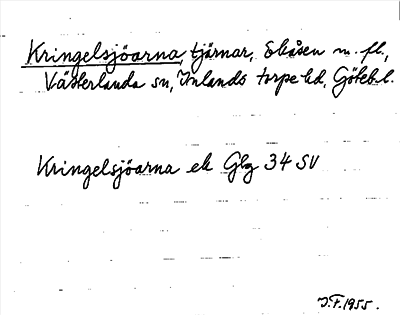 Kringelsjöarna, tjärnar, Skåsen m. fl.,
Västerlanda sn, Inlands torpe hd, Göteb. l.
Kringelsjöarna ek Gbg 34 SV
J.F. 1955.